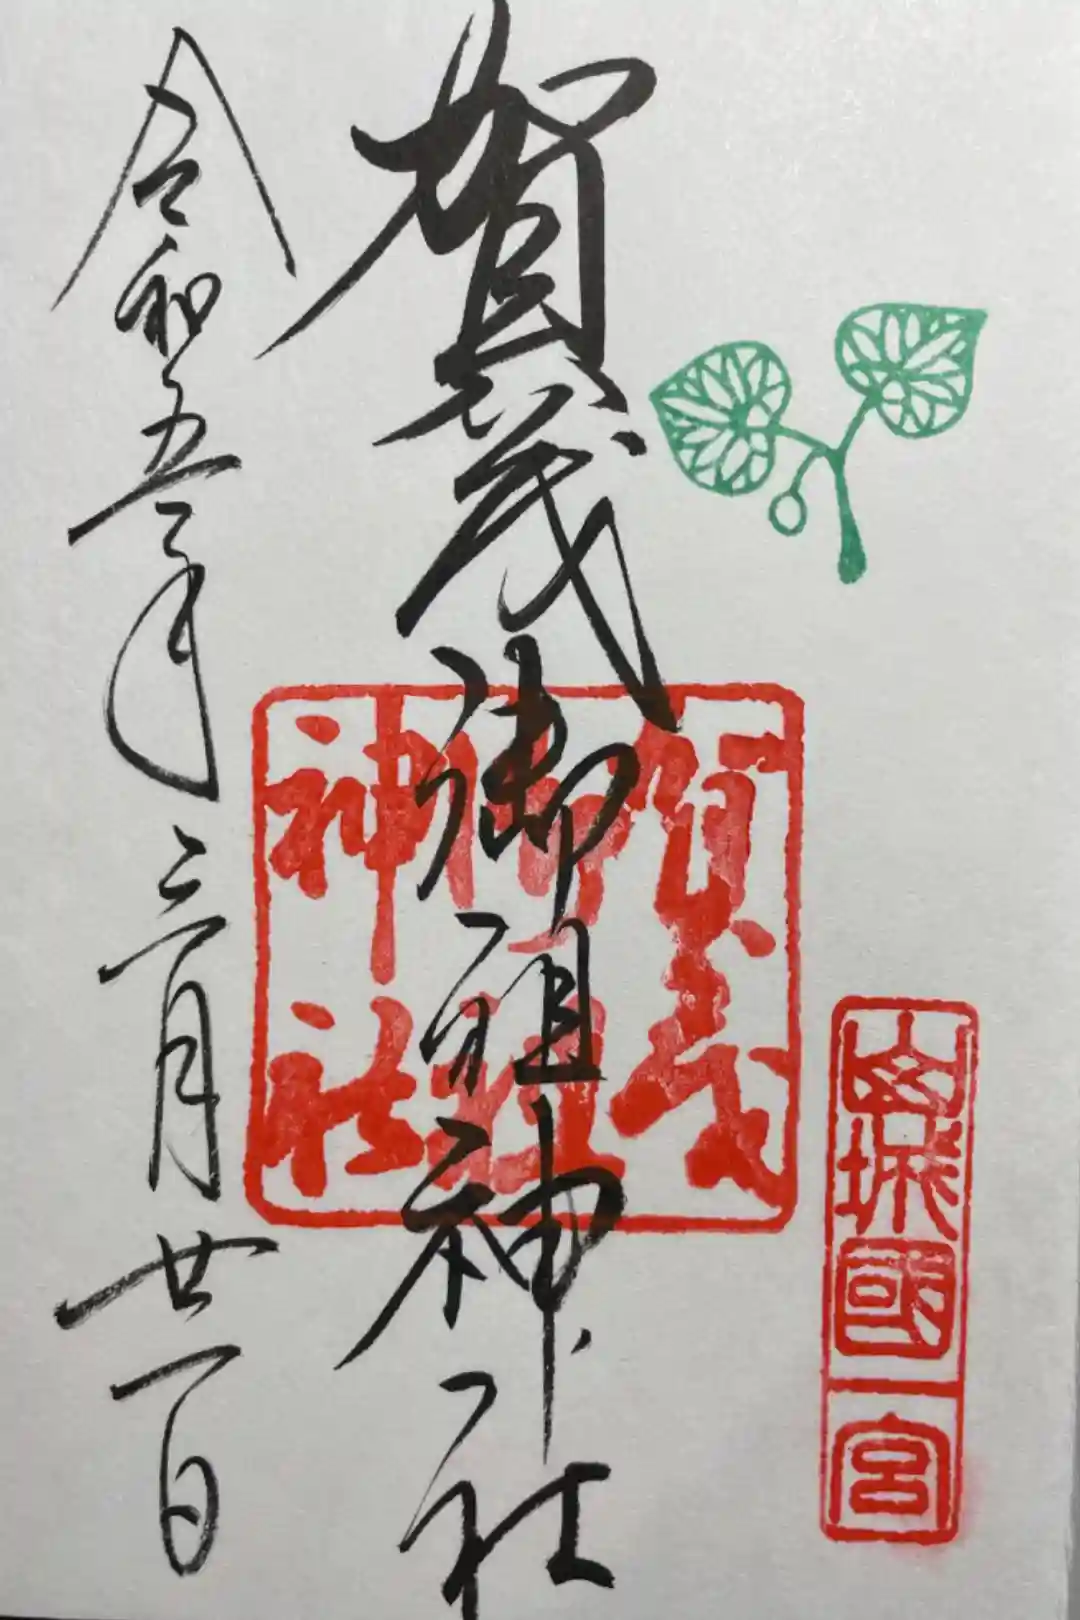 山城國一宮
賀茂御祖神社
賀茂御祖神社
令和五年三月廿一日